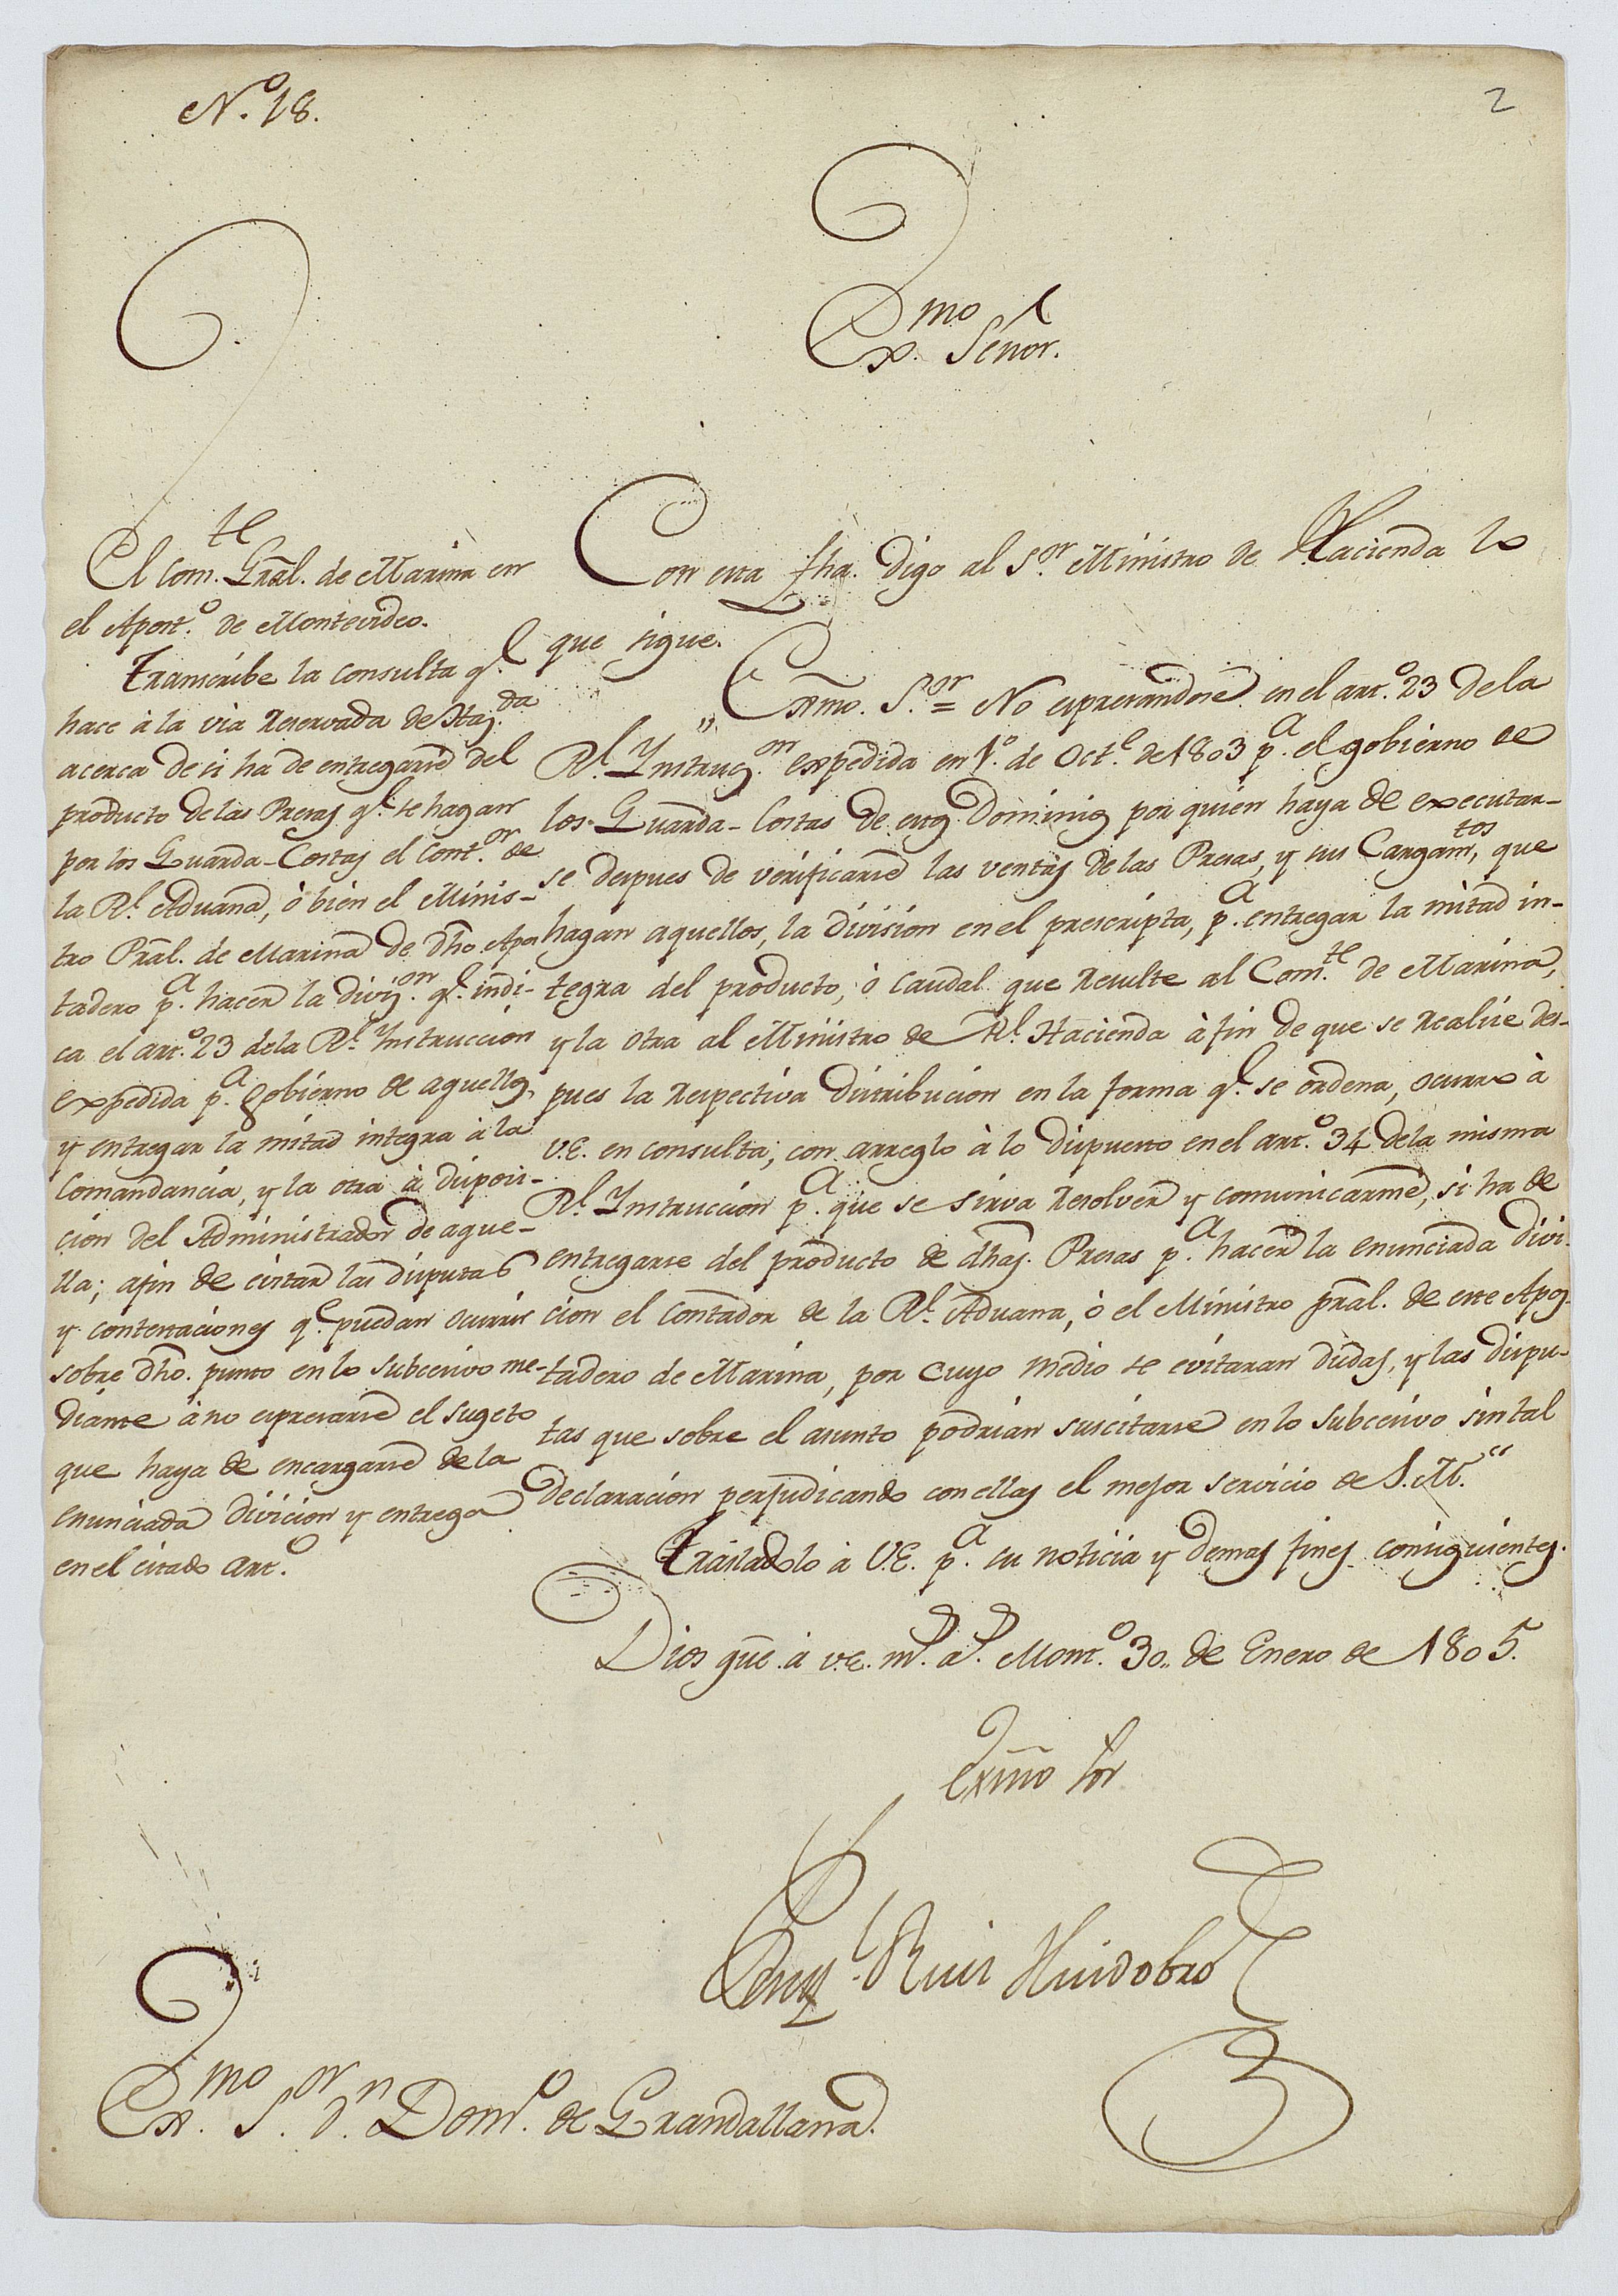 N.º 18.
2
Ex.mo Señor.
El Com.te Gral. de Marina en
el Apost.º de Montevideo.
Transcribe la consulta q.e
hace à la via reservada de Haz.da
acerca de si ha de entregarse del
producto de las Presas q.e se hagan
por los Guarda-Costas el Cont.or de
la R.l Aduana, ò bien el Minis-
tro Pral. de Marina de dho. Apos
tadero p.a hacer la divis.on q.e indi-
ca el art.º 23 de la R.l Instruccion
expedida p.a gobierno de aquellos,
y entregar la mitad integra à la
Comandancia, y la otra à disposi-
cion del Administrador de aque-
lla; afin de evitar las disputas
y contestaciones q.e puedan ocurrir
sobre dho. punto en lo subcesivo me-
diante à no espresarse el sugeto
que haya de encargarse de la
enunciada divicion y entrega
en el citado art.º
Con esta fha. digo al S.or Ministro de Hacienda lo
que sigue.
"Exmo. S.or = No espresandose en el art.º 23 de la
R.l Ynstrucc.on expedida en 1.º de Oct.e de 1803 p.a el gobierno de
los Guarda-Costas de estos Dominios por quien haya de executar-
se despues de verificarse las ventas de las Presas, y sus Cargam.tos, que
hagan aquellos, la division en el prescripta, p.a entregar la mitad in-
tegra del producto, ò caudal que resulte al Com.te de Marina,
y la otra al Ministro de R.l Hacienda à fin de que se realise des-
pues la respectiva distribucion en la forma q.e se ordena, ocurro à
V.E. en consulta, con arreglo à lo dispuesto en el art.º 34 de la misma
R.l Ynstruccion p.a que se sirva resolver y comunicarme, si ha de
entregarse del producto de dhas. Presas p.a hacer la enunciada divi-
cion el Contador de la R.l Aduana, ò el Ministro pral. de este Apos-
tadero de Marina, por cuyo medio se evitaran dudas, y las dispu-
tas que sobre el asunto podrian suscitarse en lo subcesivo sin tal
declaracion perjudicando con ellas el mejor servicio de S.M."
Trasladolo à V.E. p.a su noticia y demas fines consiguientes.
Dios gue. à V.E. m.s a.s Mont.º 30. de Enero de 1805.
Exmo Sor
Pasq.l Ruiz Huidobro
Ex.mo S.or D.n Dom.º de Grandallana.